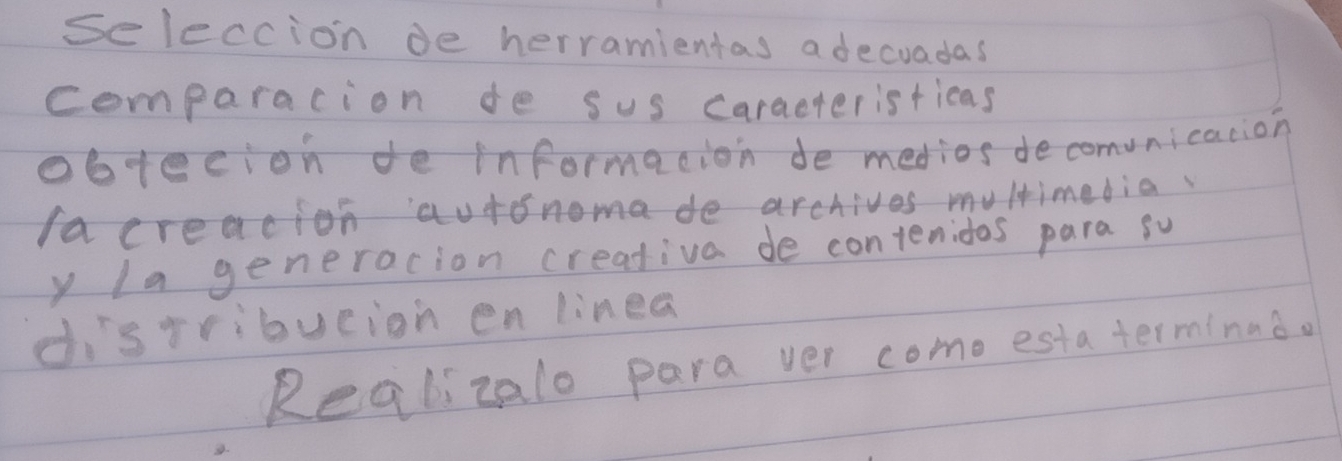 Selección de herramientas adecuadas
comparacion de sus caracteristicas
obteción de información de medios de comunicación
la creación autónoma de archivos multimedia
y la generacion creativa de contenidos para su
distribución en linea
Realizalo para ver como esta terminado